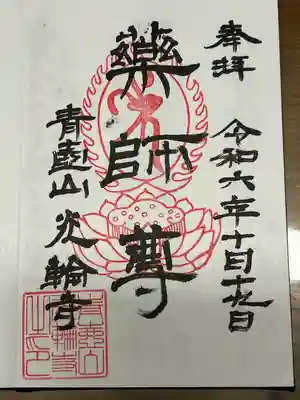 奉拝 令和六年十月十九日
藥師尊
青山 光輪寺